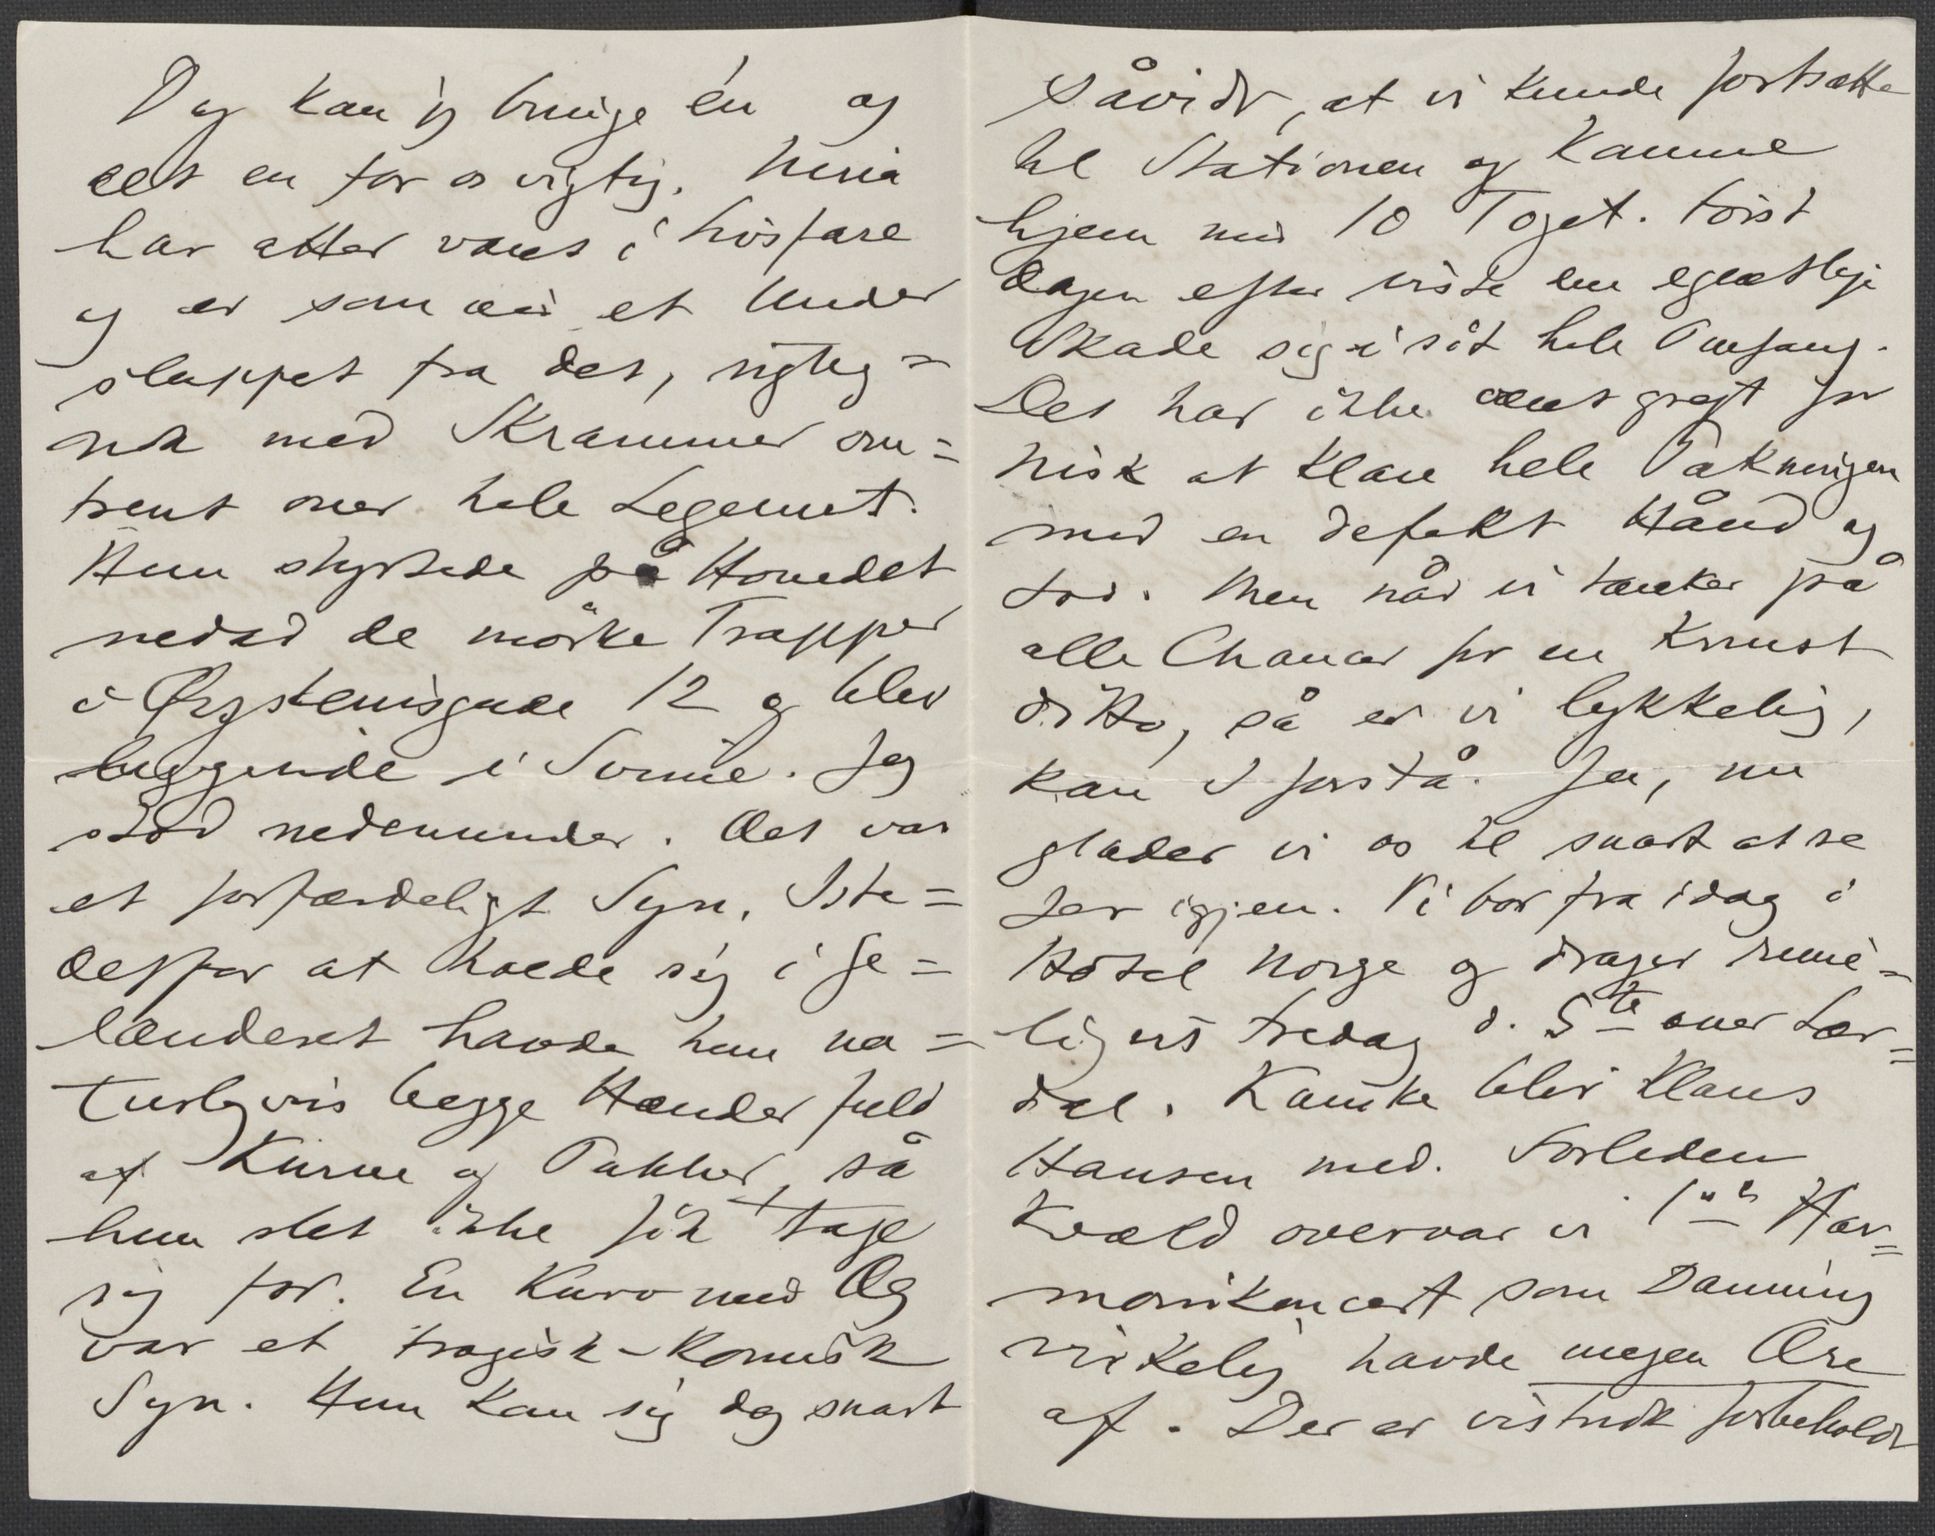 Dog kan jeg bringe én og
det en for os vigtig. Nina
har atter været i Livsfare
og er som ved et Under
sluppet fra det, rigtig=
nok med Skrammer om=
trent over hele Legemet.
Hun styrtede på Hovedet
nedad de mörke Trapper
i Øvregade 12 og blev
liggende i Svime. Jeg
stod nedenunder. Det var
et forfærdeligt Syn. Iste=
detfor at holde sig i Ge=
lænderet havde hun na=
turligvis begge Hænder fuld
af Kurve og Pakker, så
hun slet ikke fik tage
sig for. En Kurv med Æg
var et tragisk-komisk
Syn. Hun kom sig dog snart
såvidt, at vi kunde fortsætte
til Stationen og komme
hjem med 10 Toget. Först
dagen efter viste den egentlige
Skade sig i sit hele Omfang.
Det har ikke været greit for
Nisk at klare hele Pakningen
med en defekt Hånd og
Fod. Men når vi tænker på
alle Chancer for en knust
ditto, så er vi lykkelig,
kan I forstå. Ja, nu
glæder vi os til snart at se
Jer igjen. Vi bor fra idag i
Hôtel Norge og drager rime=
ligvis Fredag d. 5te over Lær=
dal. Kanske blir Klaus
Hansen med. Forleden
Kvæld overvar vi 1ste Har=
monikoncert som Danning
virkelig havde megen Ære
af. Der er vistnok forbeholdt